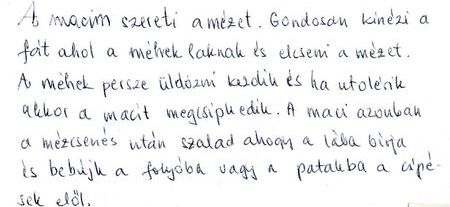 A macim szereti a mézet. Gondosan kinézi a
fát ahol a méhek laknak és elcseni a mézet.
A méhek persze üldözni kezdik és ha utolérik
akkor a macit megcsipkedik. A maci azonban
a mézcsenés után szalad ahogy a lába birja
és bebújk a folyóba vagy a patakba a cipé-
sek elől.